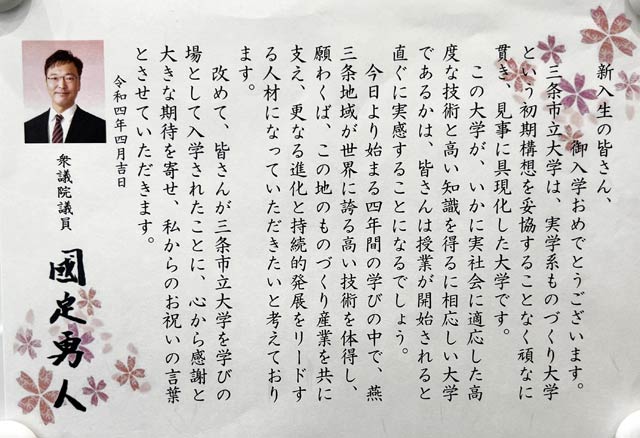 新入生の皆さん、
御入学おめでとうございます。
三条市立大学は、実学系ものづくり大学
という初期構想を妥協することなく頑なに
貫き、見事に具現化した大学です。
この大学が、いかに実社会に適応した高
度な技術と高い知識を得るに相応しい大学
であるかは、皆さんは授業が開始されると
直ぐに実感することになるでしょう。
今日より始まる四年間の学びの中で、燕
三条地域が世界に誇る高い技術を体得し、
願わくば、この地のものづくり産業を共に
支え、更なる進化と持続的発展をリードす
る人材になっていただきたいと考えており
ます。
改めて、皆さんが三条市立大学を学びの
場として入学されたことに、心から感謝と
大きな期待を寄せ、私からのお祝いの言葉
とさせていただきます。
令和四年四月吉日
衆議院議員
國定勇人